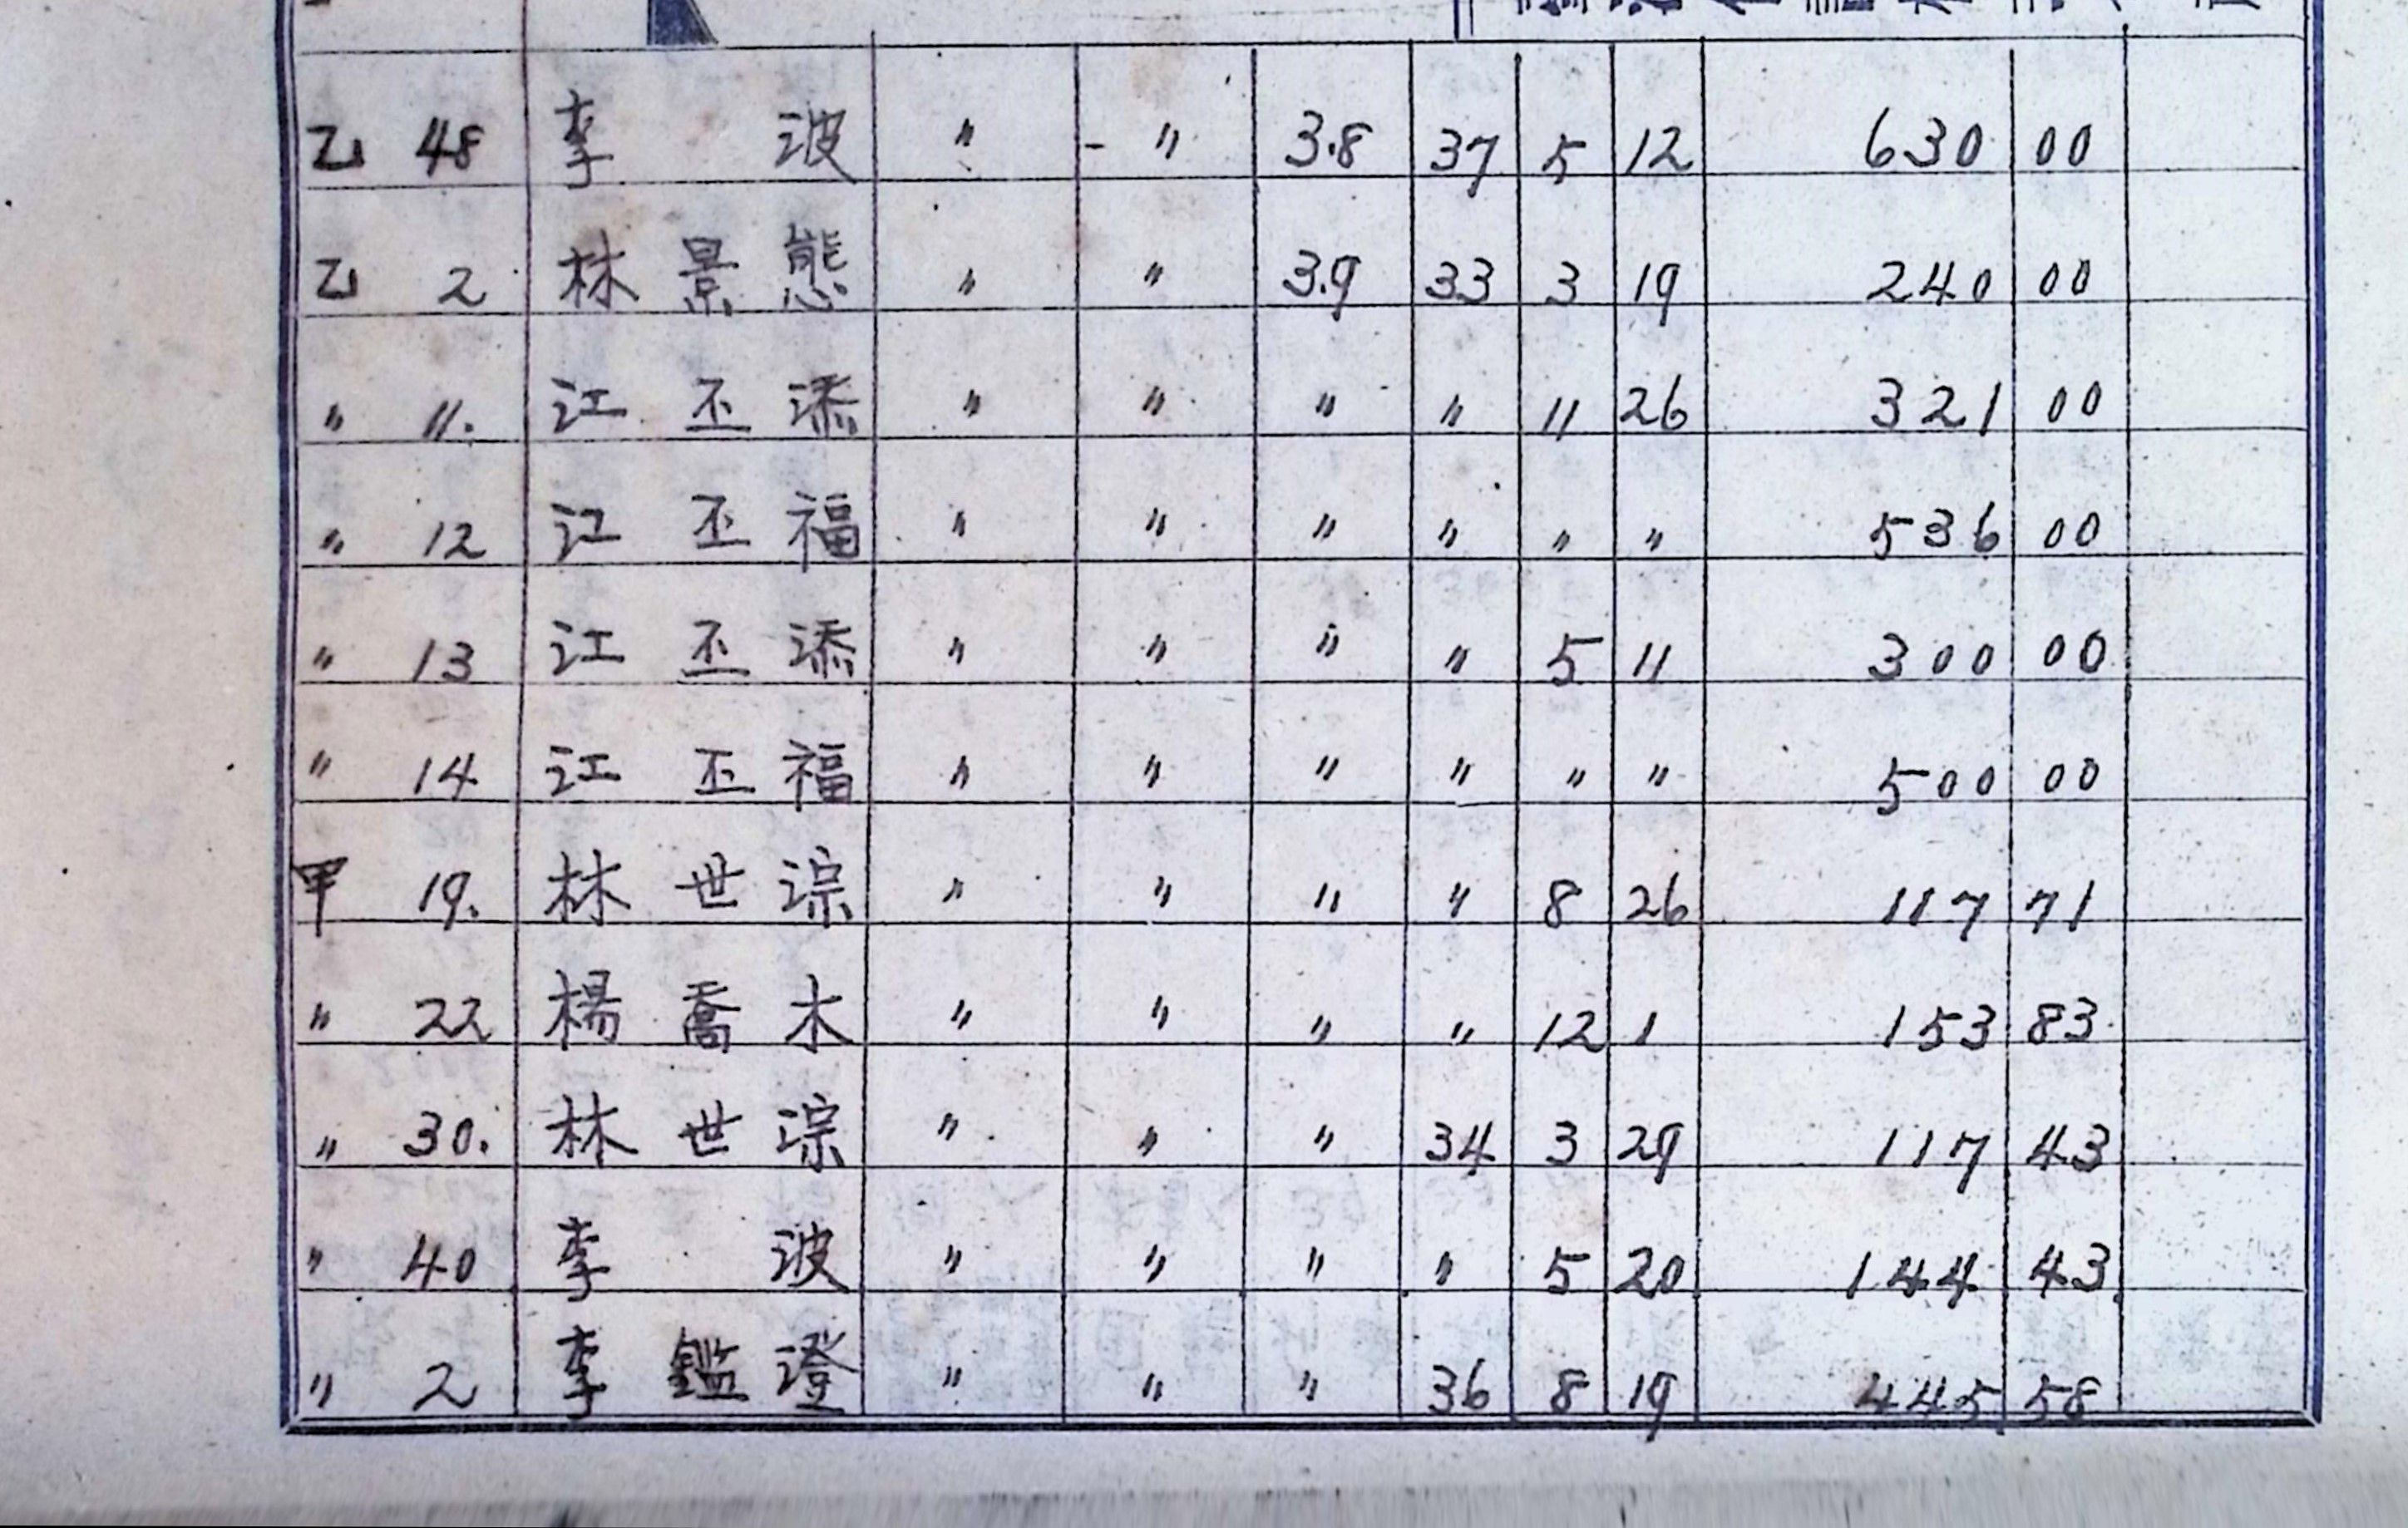 乙 48 李 波 〃 - 〃 3.8 37 5 12 630 00
乙 2 林景態 〃 〃 3.9 33 3 19 240 00
〃 11. 江丕添 〃 〃 〃 〃 11 26 321 00
〃 12 江丕福 〃 〃 〃 〃 〃 〃 536 00
〃 13 江丕添 〃 〃 〃 〃 5 11 300 00
〃 14 江丕福 〃 〃 〃 〃 〃 〃 500 00
甲 19. 林世淙 〃 〃 〃 〃 8 26 117 71
〃 22 楊喬木 〃 〃 〃 〃 12 1 153 83
〃 30. 林世淙 〃 〃 〃 34 3 29 117 43
〃 40 李 波 〃 〃 〃 〃 5 20 144 43
〃 2 李鑑澄 〃 〃 〃 36 8 19 445 58